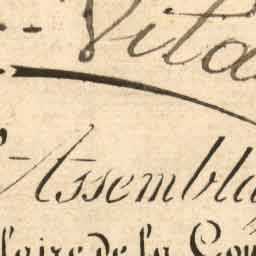 Vita
Assembla
laire de la Cou